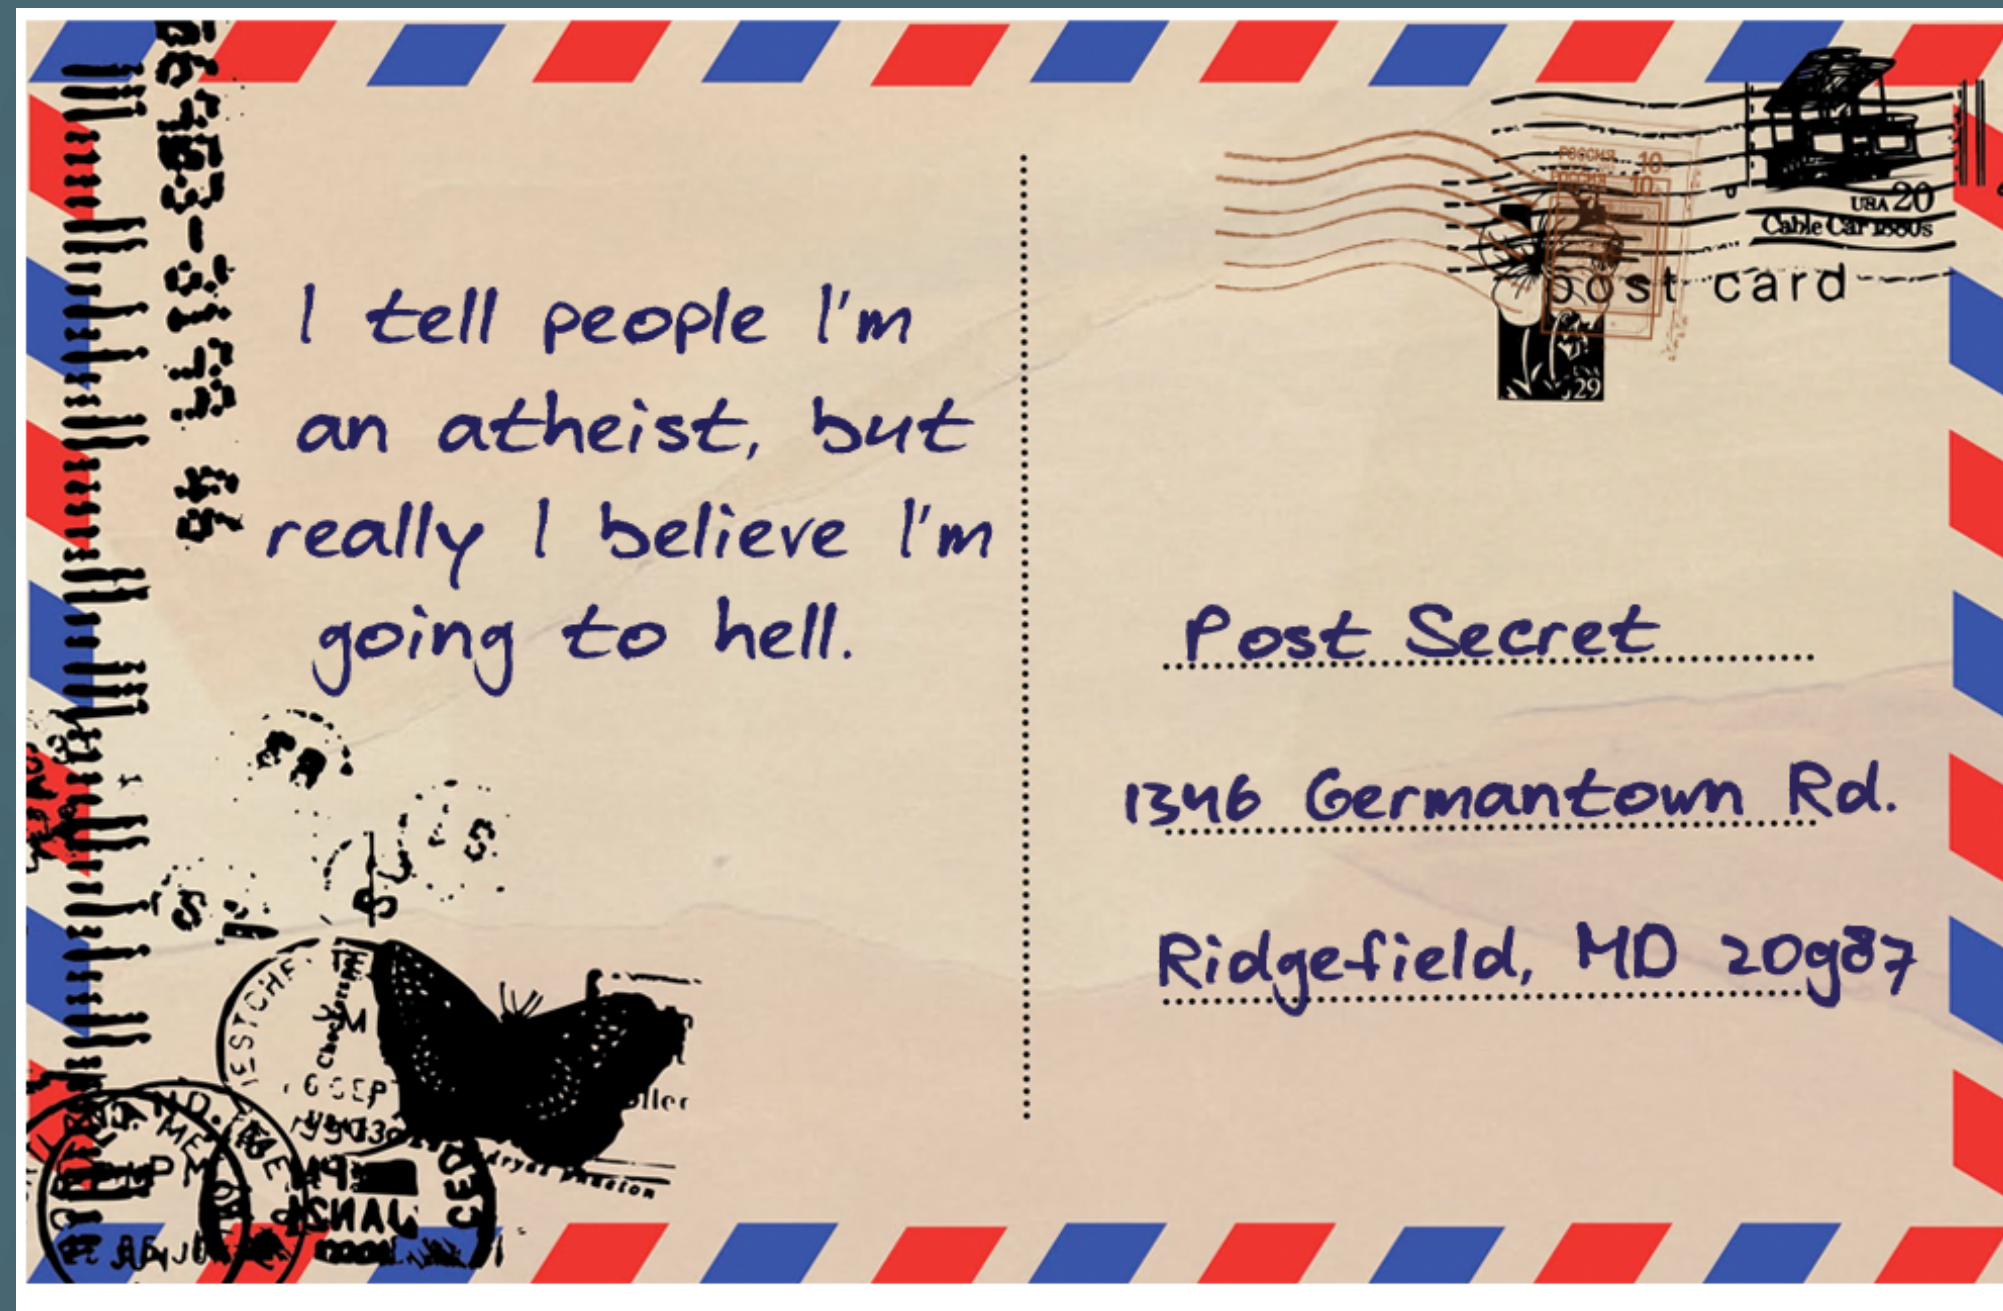 I tell people I'm
an atheist, but
really I believe I'm
going to hell.
РОССИЯ 10
USA 20
Cable Car 1880s
post card
29
Post Secret
1346 Germantown Rd.
Ridgefield, MD 20987
6 SEP
PM